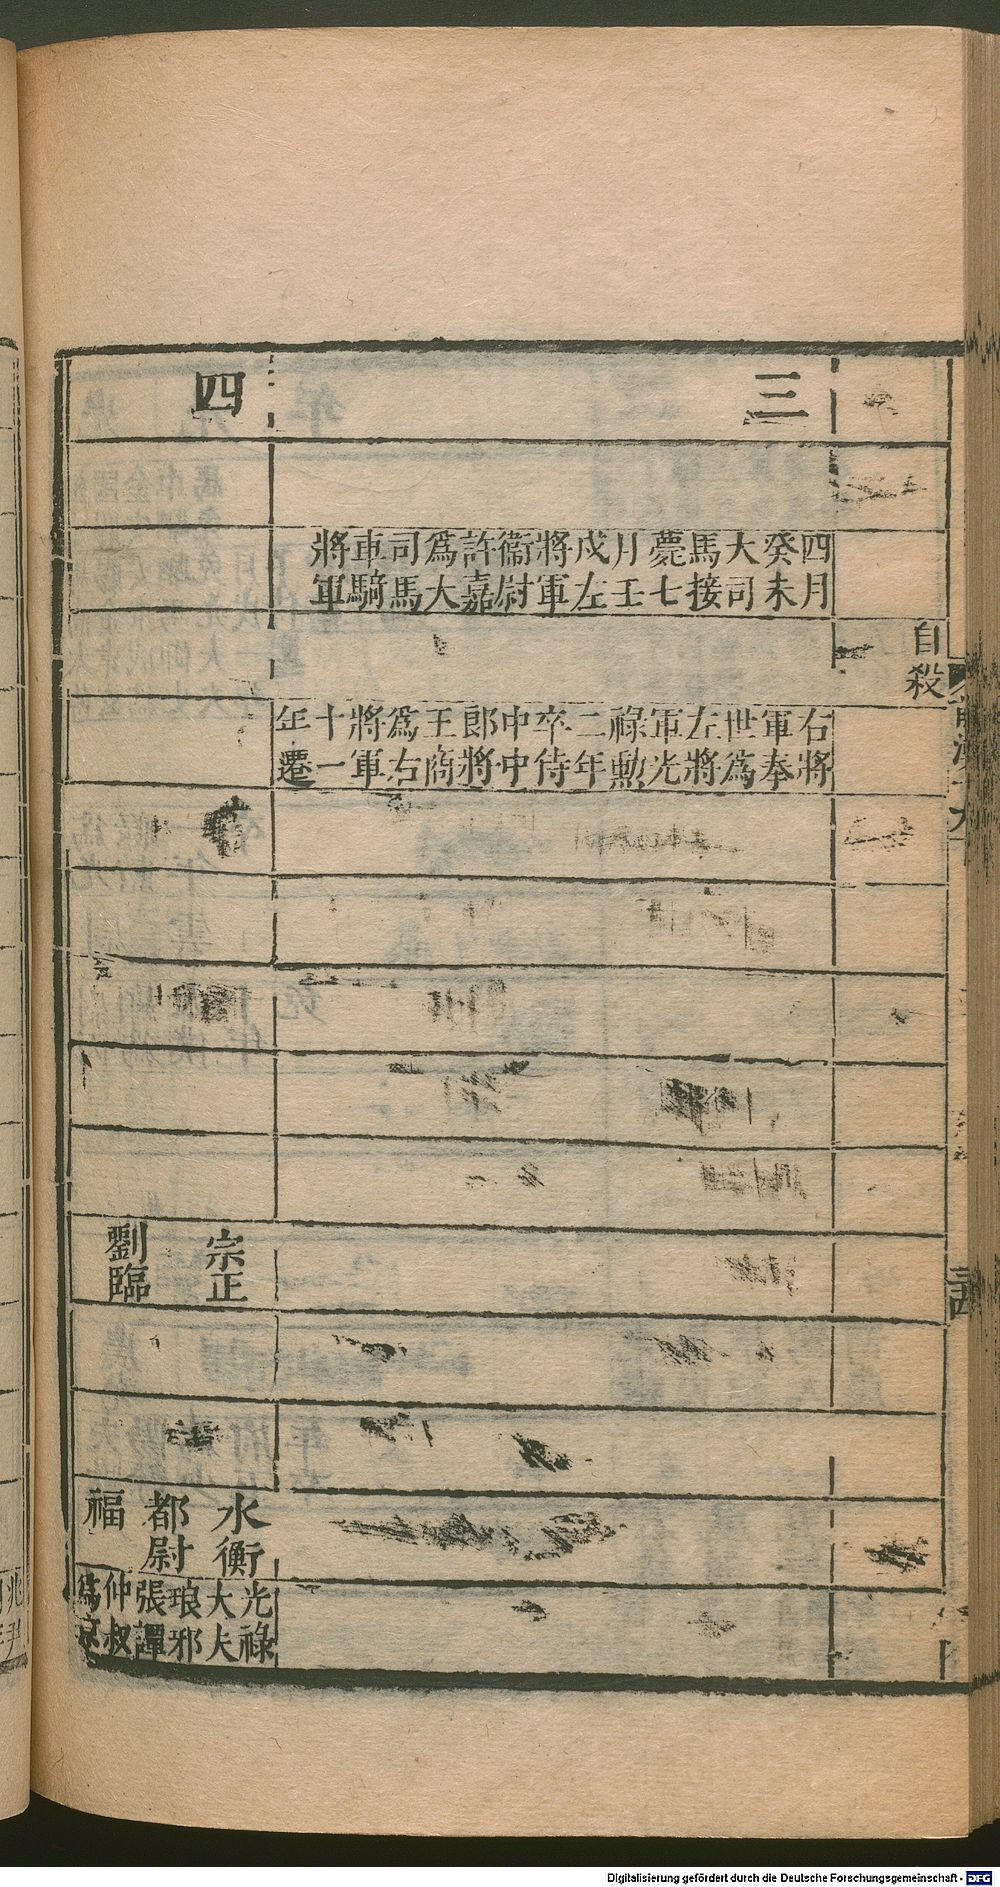 自殺
三
四月
癸未
大司
馬接
薨七
月壬
戌左
將軍
衞尉
許嘉
爲大
司馬
車騎
將軍
右將
軍奉
世爲
左將
軍光
祿勳
二年
卒侍
中中
郎將
王商
爲右
將軍
十一
年遷
四
宗正
劉臨
水衡
都尉
福
光祿
大夫
琅邪
張譚
仲叔
爲京
Digitalisierung gefördert durch die Deutsche Forschungsgemeinschaft - DFG